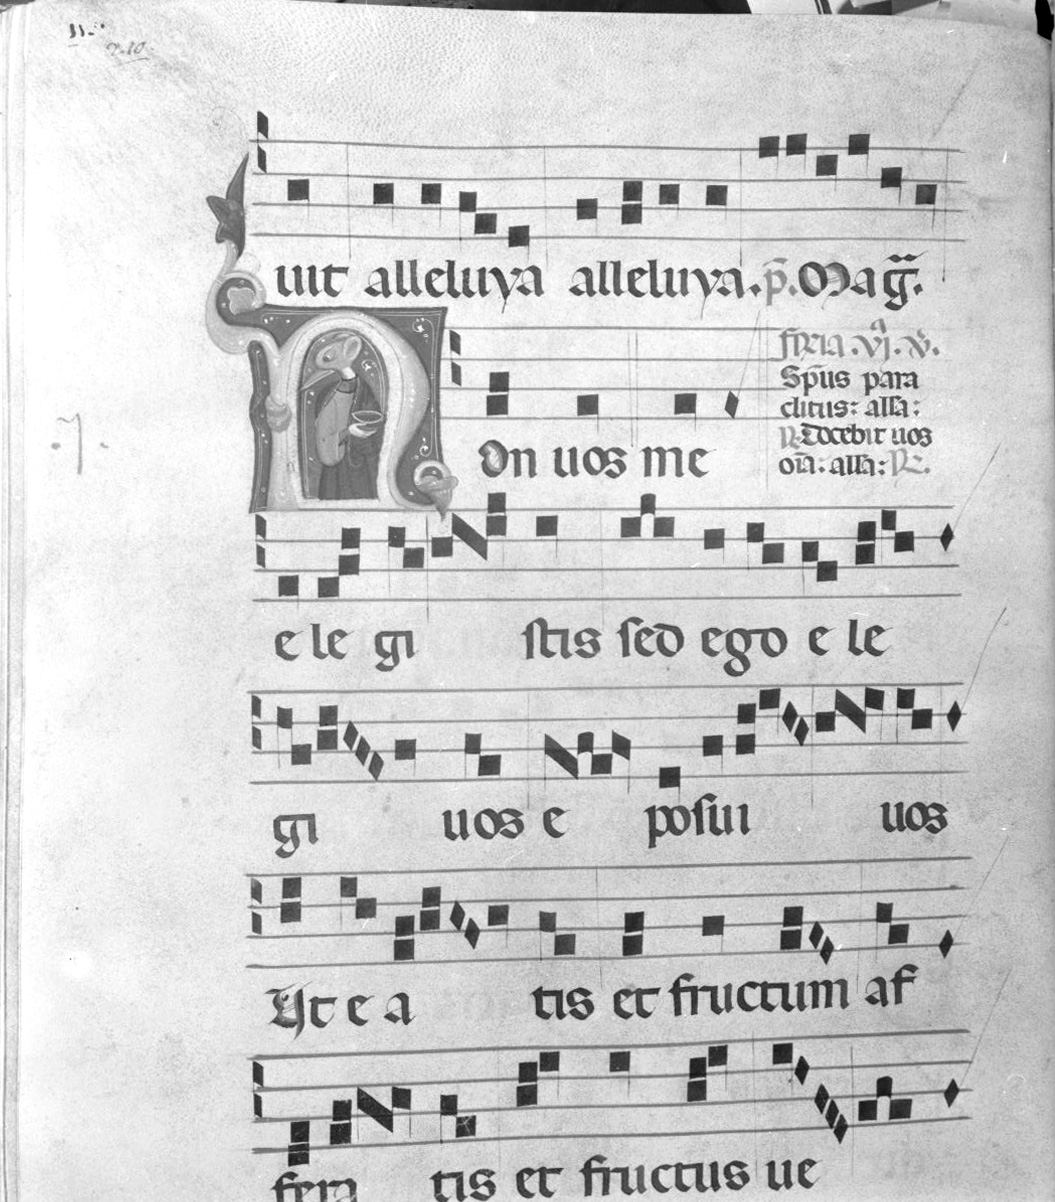 uit alleluya alleluya. p̄. Mag̃.
feria .vj. v̄.
Sp̄us para
clitus: all̃a:
R. Docebit uos
on on uos me
oīa: all̃a: R.
e le gi stis sed ego e le
gi uos e posui uos
Ut e a tis et fructum af
fera tis et fructus ue